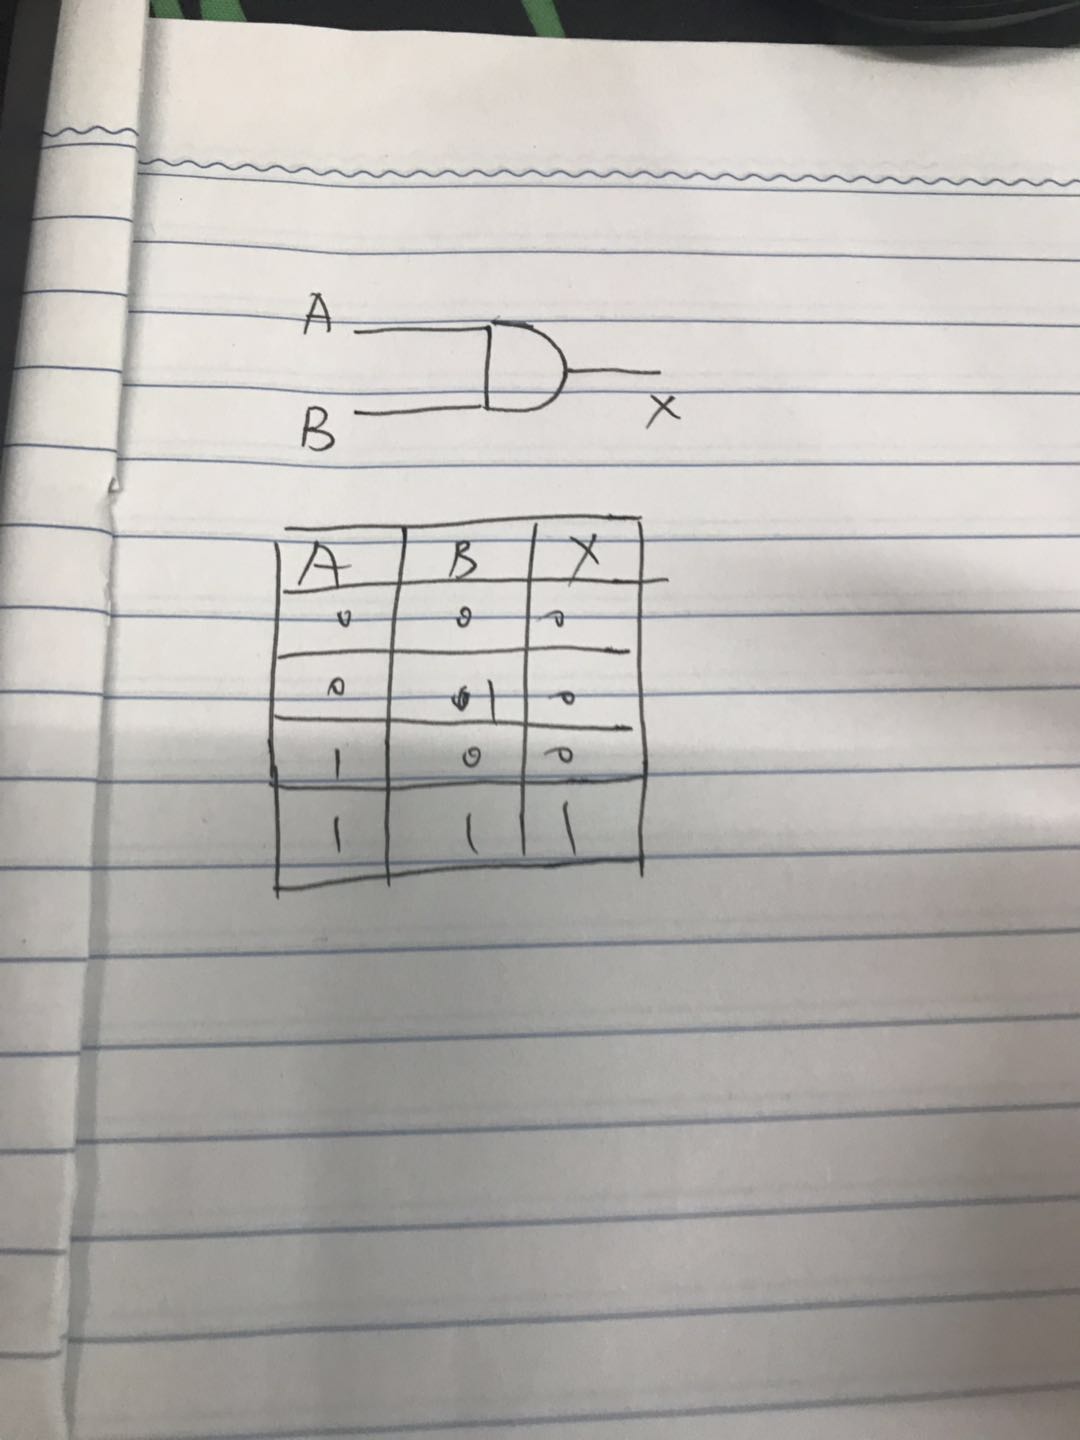 A
B
X
A B X
0 0 0
0 1 0
1 0 0
1 1 1